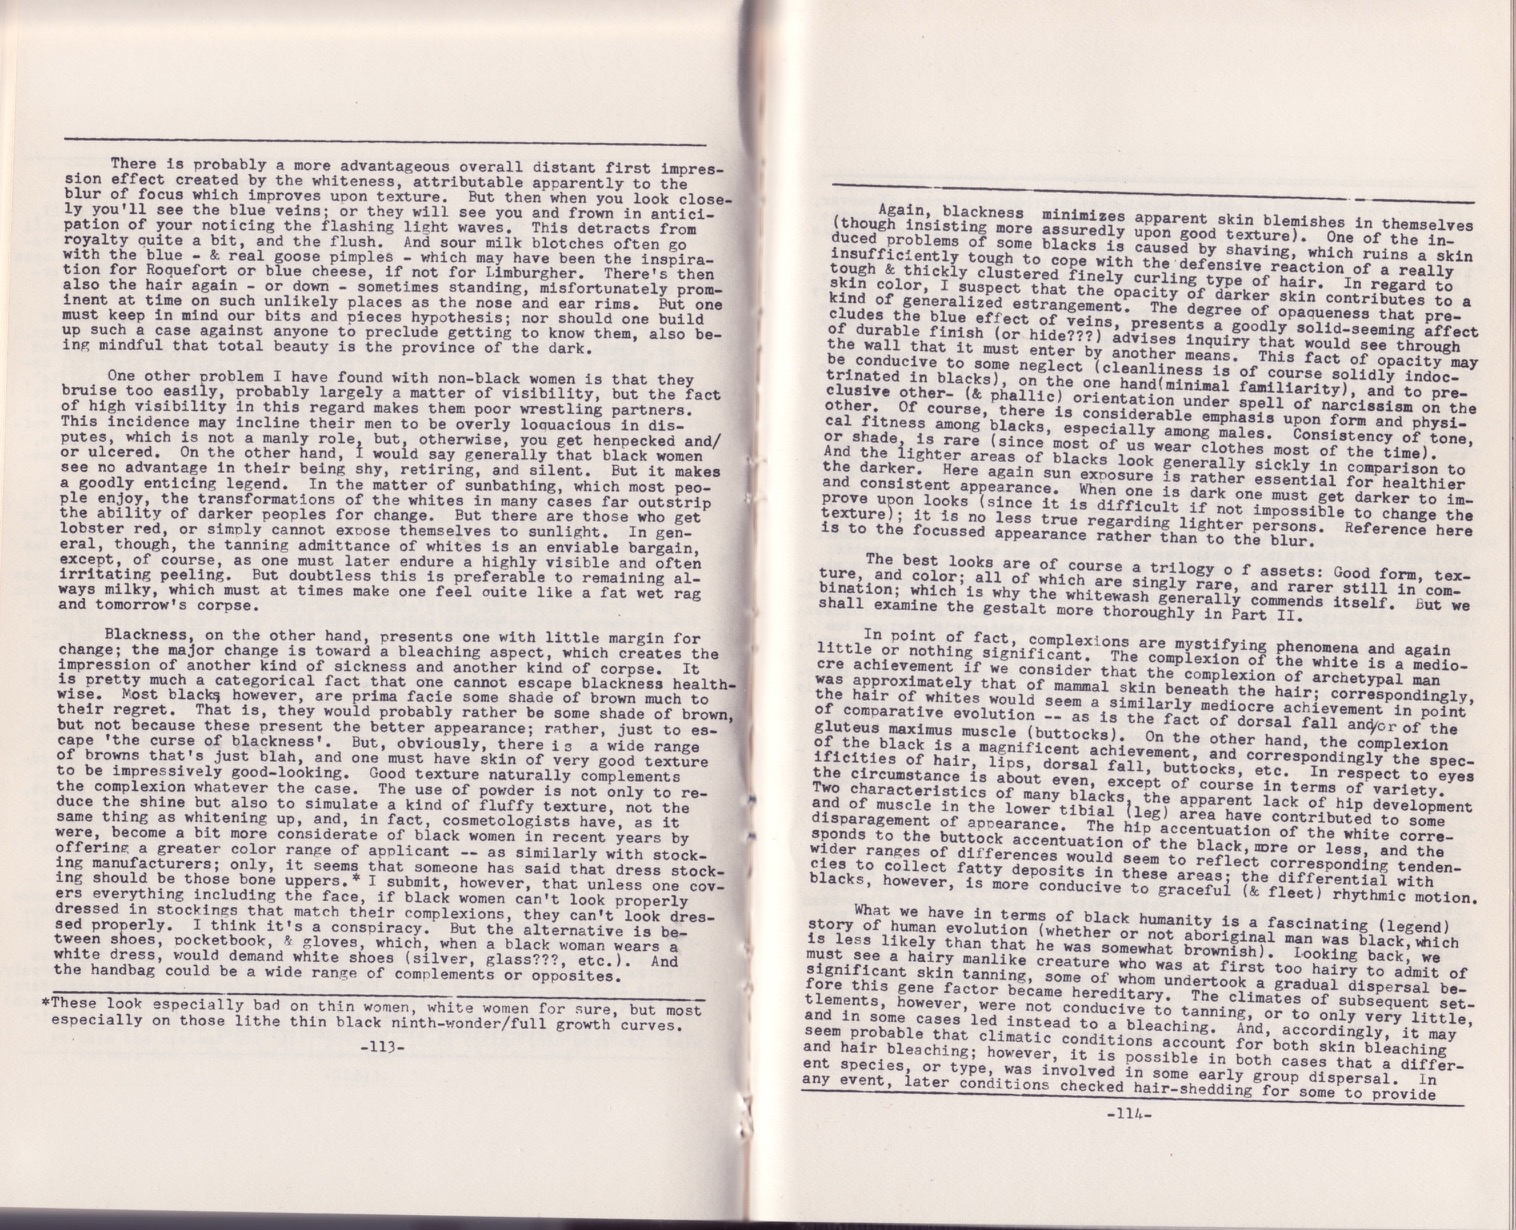 There is probably a more advantageous overall distant first impres-
sion effect created by the whiteness, attributable apparently to the
blur of focus which improves upon texture. But then when you look close-
ly you'll see the blue veins; or they will see you and frown in antici-
pation of your noticing the flashing light waves. This detracts from
royalty quite a bit, and the flush. And sour milk blotches often go
with the blue - & real goose pimples - which may have been the inspira-
tion for Roquefort or blue cheese, if not for Limburgher. There's then
also the hair again - or down - sometimes standing, misfortunately prom-
inent at time on such unlikely places as the nose and ear rims. But one
must keep in mind our bits and pieces hypothesis; nor should one build
up such a case against anyone to preclude getting to know them, also be-
ing mindful that total beauty is the province of the dark.
One other problem I have found with non-black women is that they
bruise too easily, probably largely a matter of visibility, but the fact
of high visibility in this regard makes them poor wrestling partners.
This incidence may incline their men to be overly loquacious in dis-
putes, which is not a manly role, but, otherwise, you get henpecked and/
or ulcered. On the other hand, I would say generally that black women
see no advantage in their being shy, retiring, and silent. But it makes
a goodly enticing legend. In the matter of sunbathing, which most peo-
ple enjoy, the transformations of the whites in many cases far outstrip
the ability of darker peoples for change. But there are those who get
lobster red, or simply cannot expose themselves to sunlight. In gen-
eral, though, the tanning admittance of whites is an enviable bargain,
except, of course, as one must later endure a highly visible and often
irritating peeling. But doubtless this is preferable to remaining al-
ways milky, which must at times make one feel quite like a fat wet rag
and tomorrow's corpse.
Blackness, on the other hand, presents one with little margin for
change; the major change is toward a bleaching aspect, which creates the
impression of another kind of sickness and another kind of corpse. It
is pretty much a categorical fact that one cannot escape blackness health-
wise. Most blacks however, are prima facie some shade of brown much to
their regret. That is, they would probably rather be some shade of brown,
but not because these present the better appearance; rather, just to es-
cape 'the curse of blackness'. But, obviously, there is a wide range
of browns that's just blah, and one must have skin of very good texture
to be impressively good-looking. Good texture naturally complements
the complexion whatever the case. The use of powder is not only to re-
duce the shine but also to simulate a kind of fluffy texture, not the
same thing as whitening up, and, in fact, cosmetologists have, as it
were, become a bit more considerate of black women in recent years by
offering a greater color range of applicant -- as similarly with stock-
ing manufacturers; only, it seems that someone has said that dress stock-
ing should be those bone uppers.* I submit, however, that unless one cov-
ers everything including the face, if black women can't look properly
dressed in stockings that match their complexions, they can't look dres-
sed properly. I think it's a conspiracy. But the alternative is be-
tween shoes, pocketbook, & gloves, which, when a black woman wears a
white dress, would demand white shoes (silver, glass???, etc.). And
the handbag could be a wide range of complements or opposites.
*These look especially bad on thin women, white women for sure, but most
especially on those lithe thin black ninth-wonder/full growth curves.
-113-
Again, blackness minimizes apparent skin blemishes in themselves
(though insisting more assuredly upon good texture). One of the in-
duced problems of some blacks is caused by shaving, which ruins a skin
insufficiently tough to cope with the defensive reaction of a really
tough & thickly clustered finely curling type of hair. In regard to
skin color, I suspect that the opacity of darker skin contributes to a
kind of generalized estrangement. The degree of opaqueness that pre-
cludes the blue effect of veins, presents a goodly solid-seeming affect
of durable finish (or hide???) advises inquiry that would see through
the wall that it must enter by another means. This fact of opacity may
be conducive to some neglect (cleanliness is of course solidly indoc-
trinated in blacks), on the one hand(minimal familiarity), and to pre-
clusive other- (& phallic) orientation under spell of narcissism on the
other. Of course, there is considerable emphasis upon form and physi-
cal fitness among blacks, especially among males. Consistency of tone,
or shade, is rare (since most of us wear clothes most of the time).
And the lighter areas of blacks look generally sickly in comparison to
the darker. Here again sun exposure is rather essential for healthier
and consistent appearance. When one is dark one must get darker to im-
prove upon looks (since it is difficult if not impossible to change the
texture); it is no less true regarding lighter persons. Reference here
is to the focussed appearance rather than to the blur.
The best looks are of course a trilogy o f assets: Good form, tex-
ture, and color; all of which are singly rare, and rarer still in com-
bination; which is why the whitewash generally commends itself. But we
shall examine the gestalt more thoroughly in Part II.
In point of fact, complexions are mystifying phenomena and again
little or nothing significant. The complexion of the white is a medio-
cre achievement if we consider that the complexion of archetypal man
was approximately that of mammal skin beneath the hair; correspondingly,
the hair of whites would seem a similarly mediocre achievement in point
of comparative evolution -- as is the fact of dorsal fall and/or of the
gluteus maximus muscle (buttocks). On the other hand, the complexion
of the black is a magnificent achievement, and correspondingly the spec-
ificities of hair, lips, dorsal fall, buttocks, etc. In respect to eyes
the circumstance is about even, except of course in terms of variety.
Two characteristics of many blacks, the apparent lack of hip development
and of muscle in the lower tibial (leg) area have contributed to some
disparagement of appearance. The hip accentuation of the white corre-
sponds to the buttock accentuation of the black, more or less, and the
wider ranges of differences would seem to reflect corresponding tenden-
cies to collect fatty deposits in these areas; the differential with
blacks, however, is more conducive to graceful (& fleet) rhythmic motion.
What we have in terms of black humanity is a fascinating (legend)
story of human evolution (whether or not aboriginal man was black, which
is less likely than that he was somewhat brownish). Looking back, we
must see a hairy manlike creature who was at first too hairy to admit of
significant skin tanning, some of whom undertook a gradual dispersal be-
fore this gene factor became hereditary. The climates of subsequent set-
tlements, however, were not conducive to tanning, or to only very little,
and in some cases led instead to a bleaching. And, accordingly, it may
seem probable that climatic conditions account for both skin bleaching
and hair bleaching; however, it is possible in both cases that a differ-
ent species, or type, was involved in some early group dispersal. In
any event, later conditions checked hair-shedding for some to provide
-114-